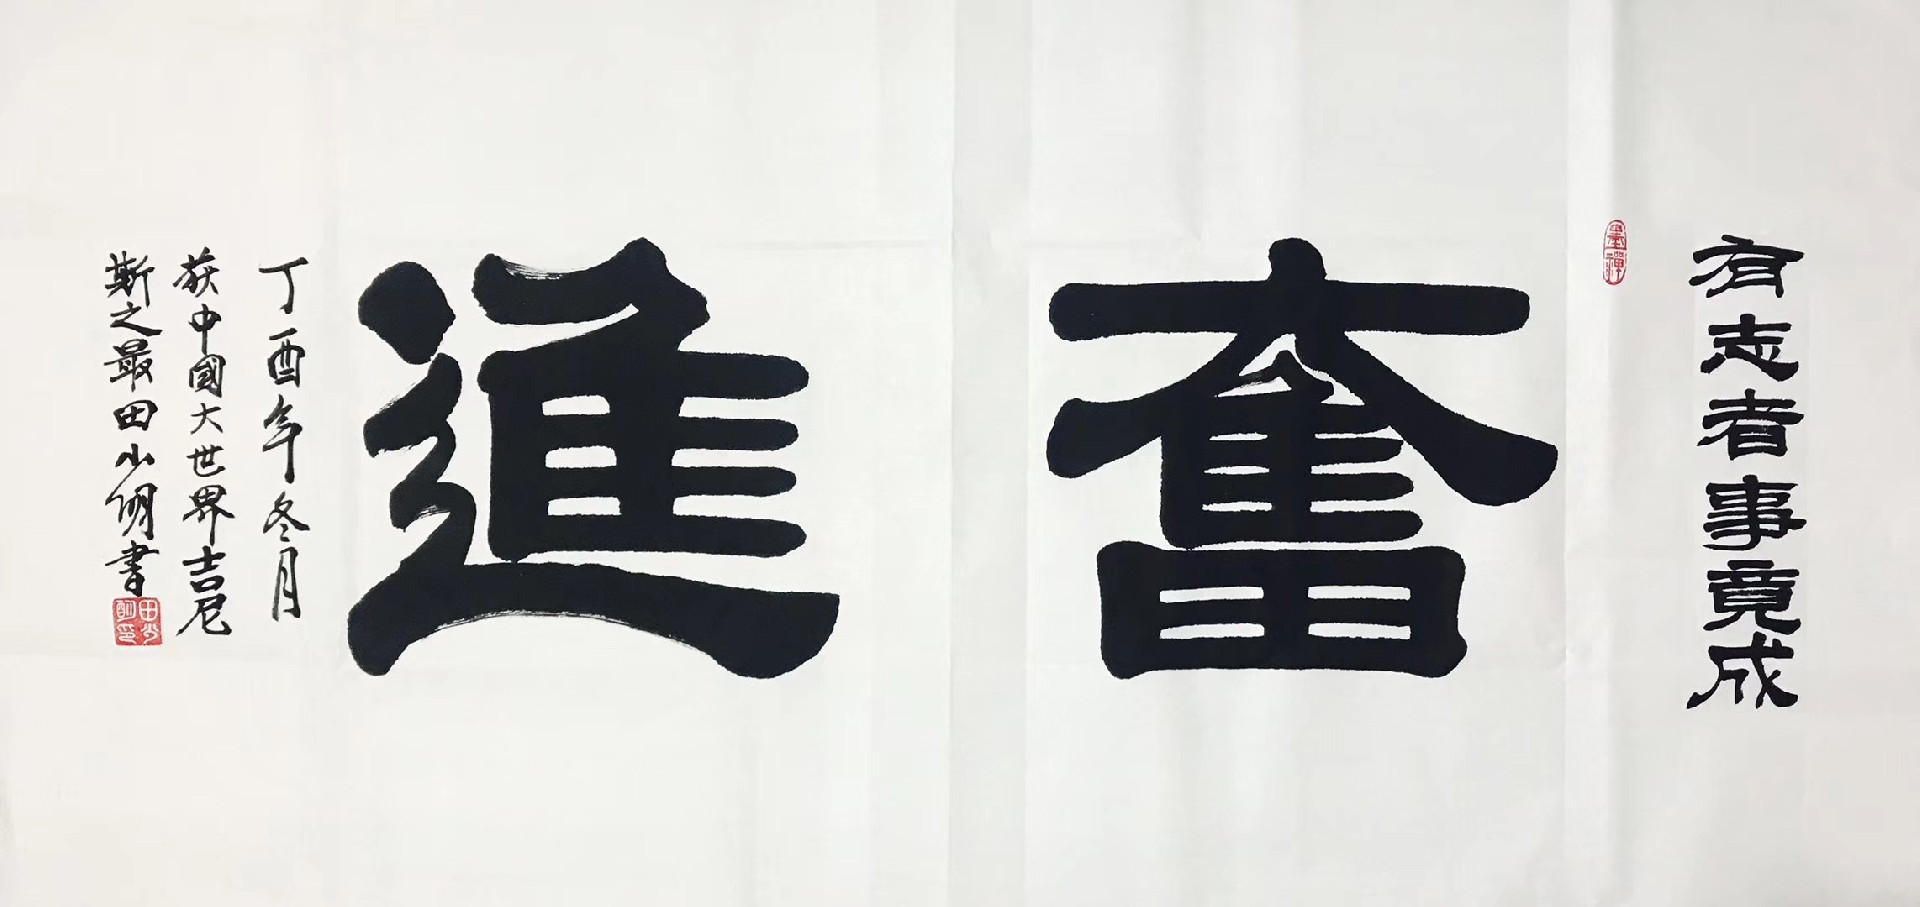 有志者事竟成
墨禪
奮進
丁酉年冬月
获中國大世界吉尼
斯之最田小明書